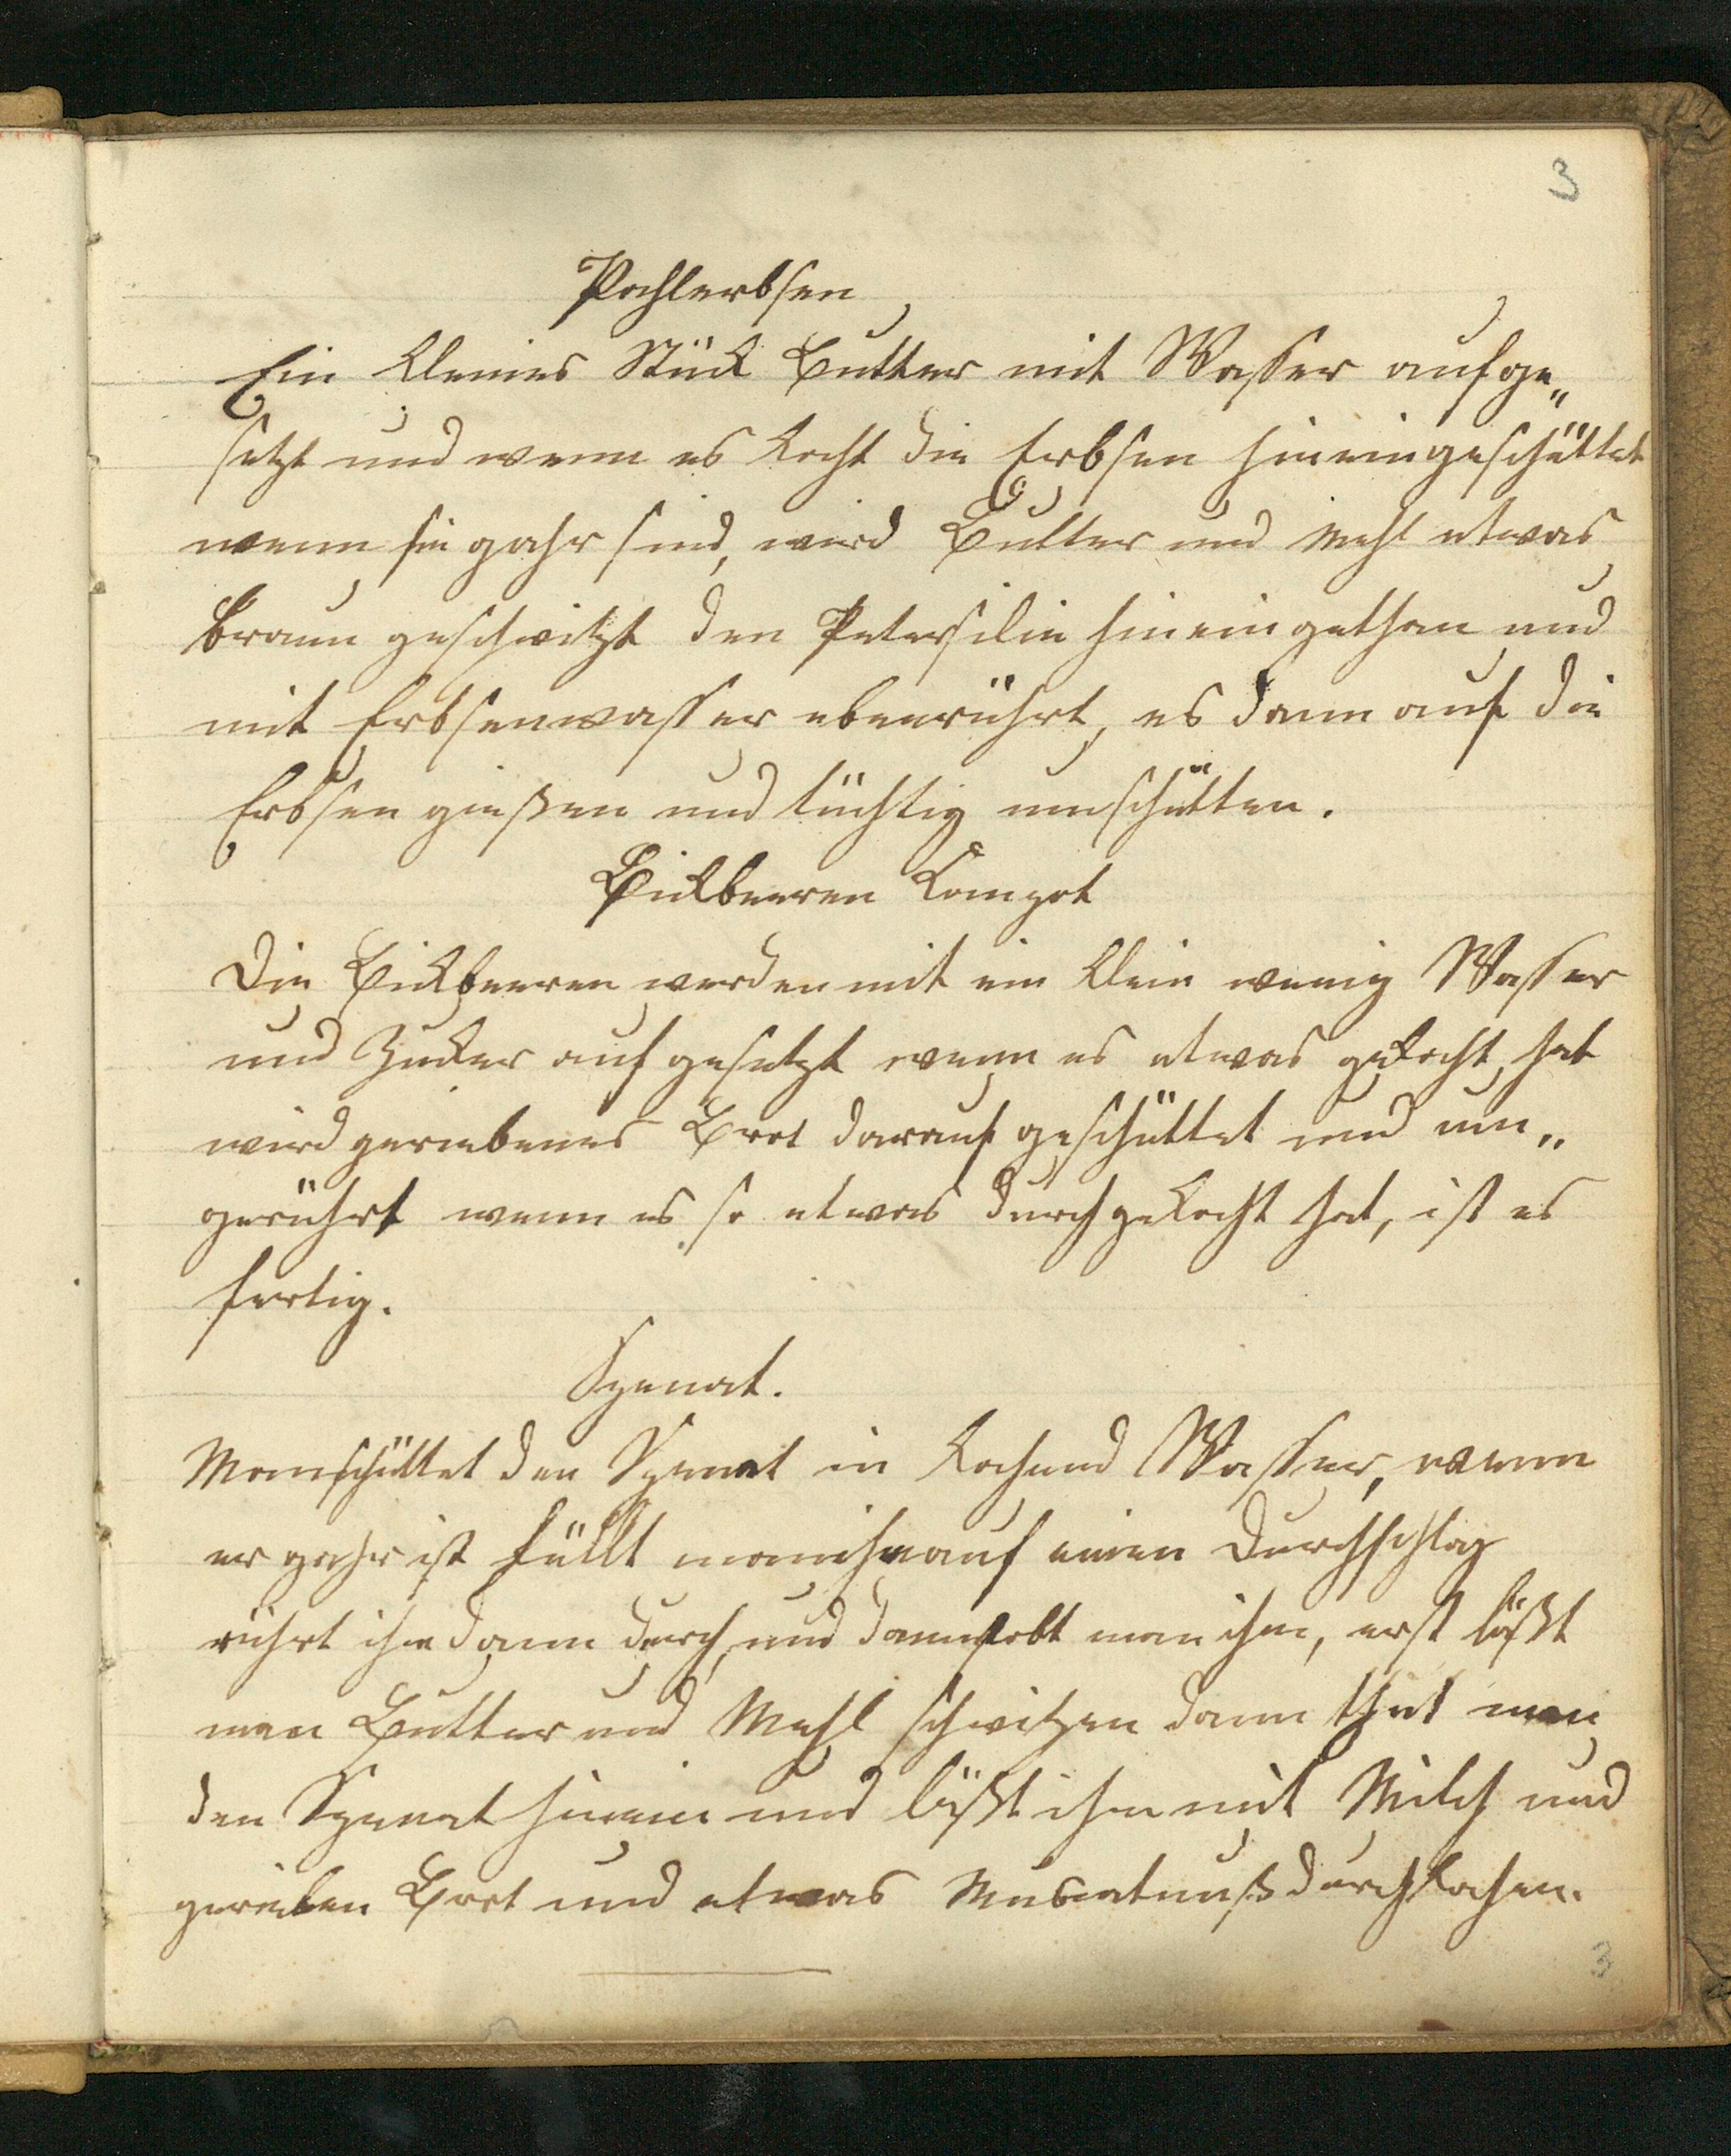 3
Pahlerbsen
Ein kleines Stück Butter mit Wasser aufge„
setzt und wenn es kocht die Erbsen hineingeschüttet
wenn sie gahr sind, wird Butter und Mehl etwas
braun geschwitzt den Petersilie hineingethan und
mit Erbsenwasser ebenrührt, es dann auf die
Erbsen gießen und tüchtig umschütten.
Bickbeeren Kompot
Die Bickbeeren werden mit ein klein wenig Wasser
und Zucker aufgesetzt wenn es etwas gekocht hat
wird geriebenes Brot darauf geschüttet und um„
gerührt wenn es so etwas durchgekocht hat, ist es
fertig.
Spenat.
Man schüttet den Spenat in kochend Wasser, wenn
er gahr ist füllt man ihn auf einen Durchschlag
rührt ihn dann durch, und dann stobt man ihn, erst läßt
man Butter und Mehl schwitzen dann thut man
den Spenat hinein und läßt ihn mit Milch und
gerieben Brot und etwas Muscatnuß durchkochen.
3